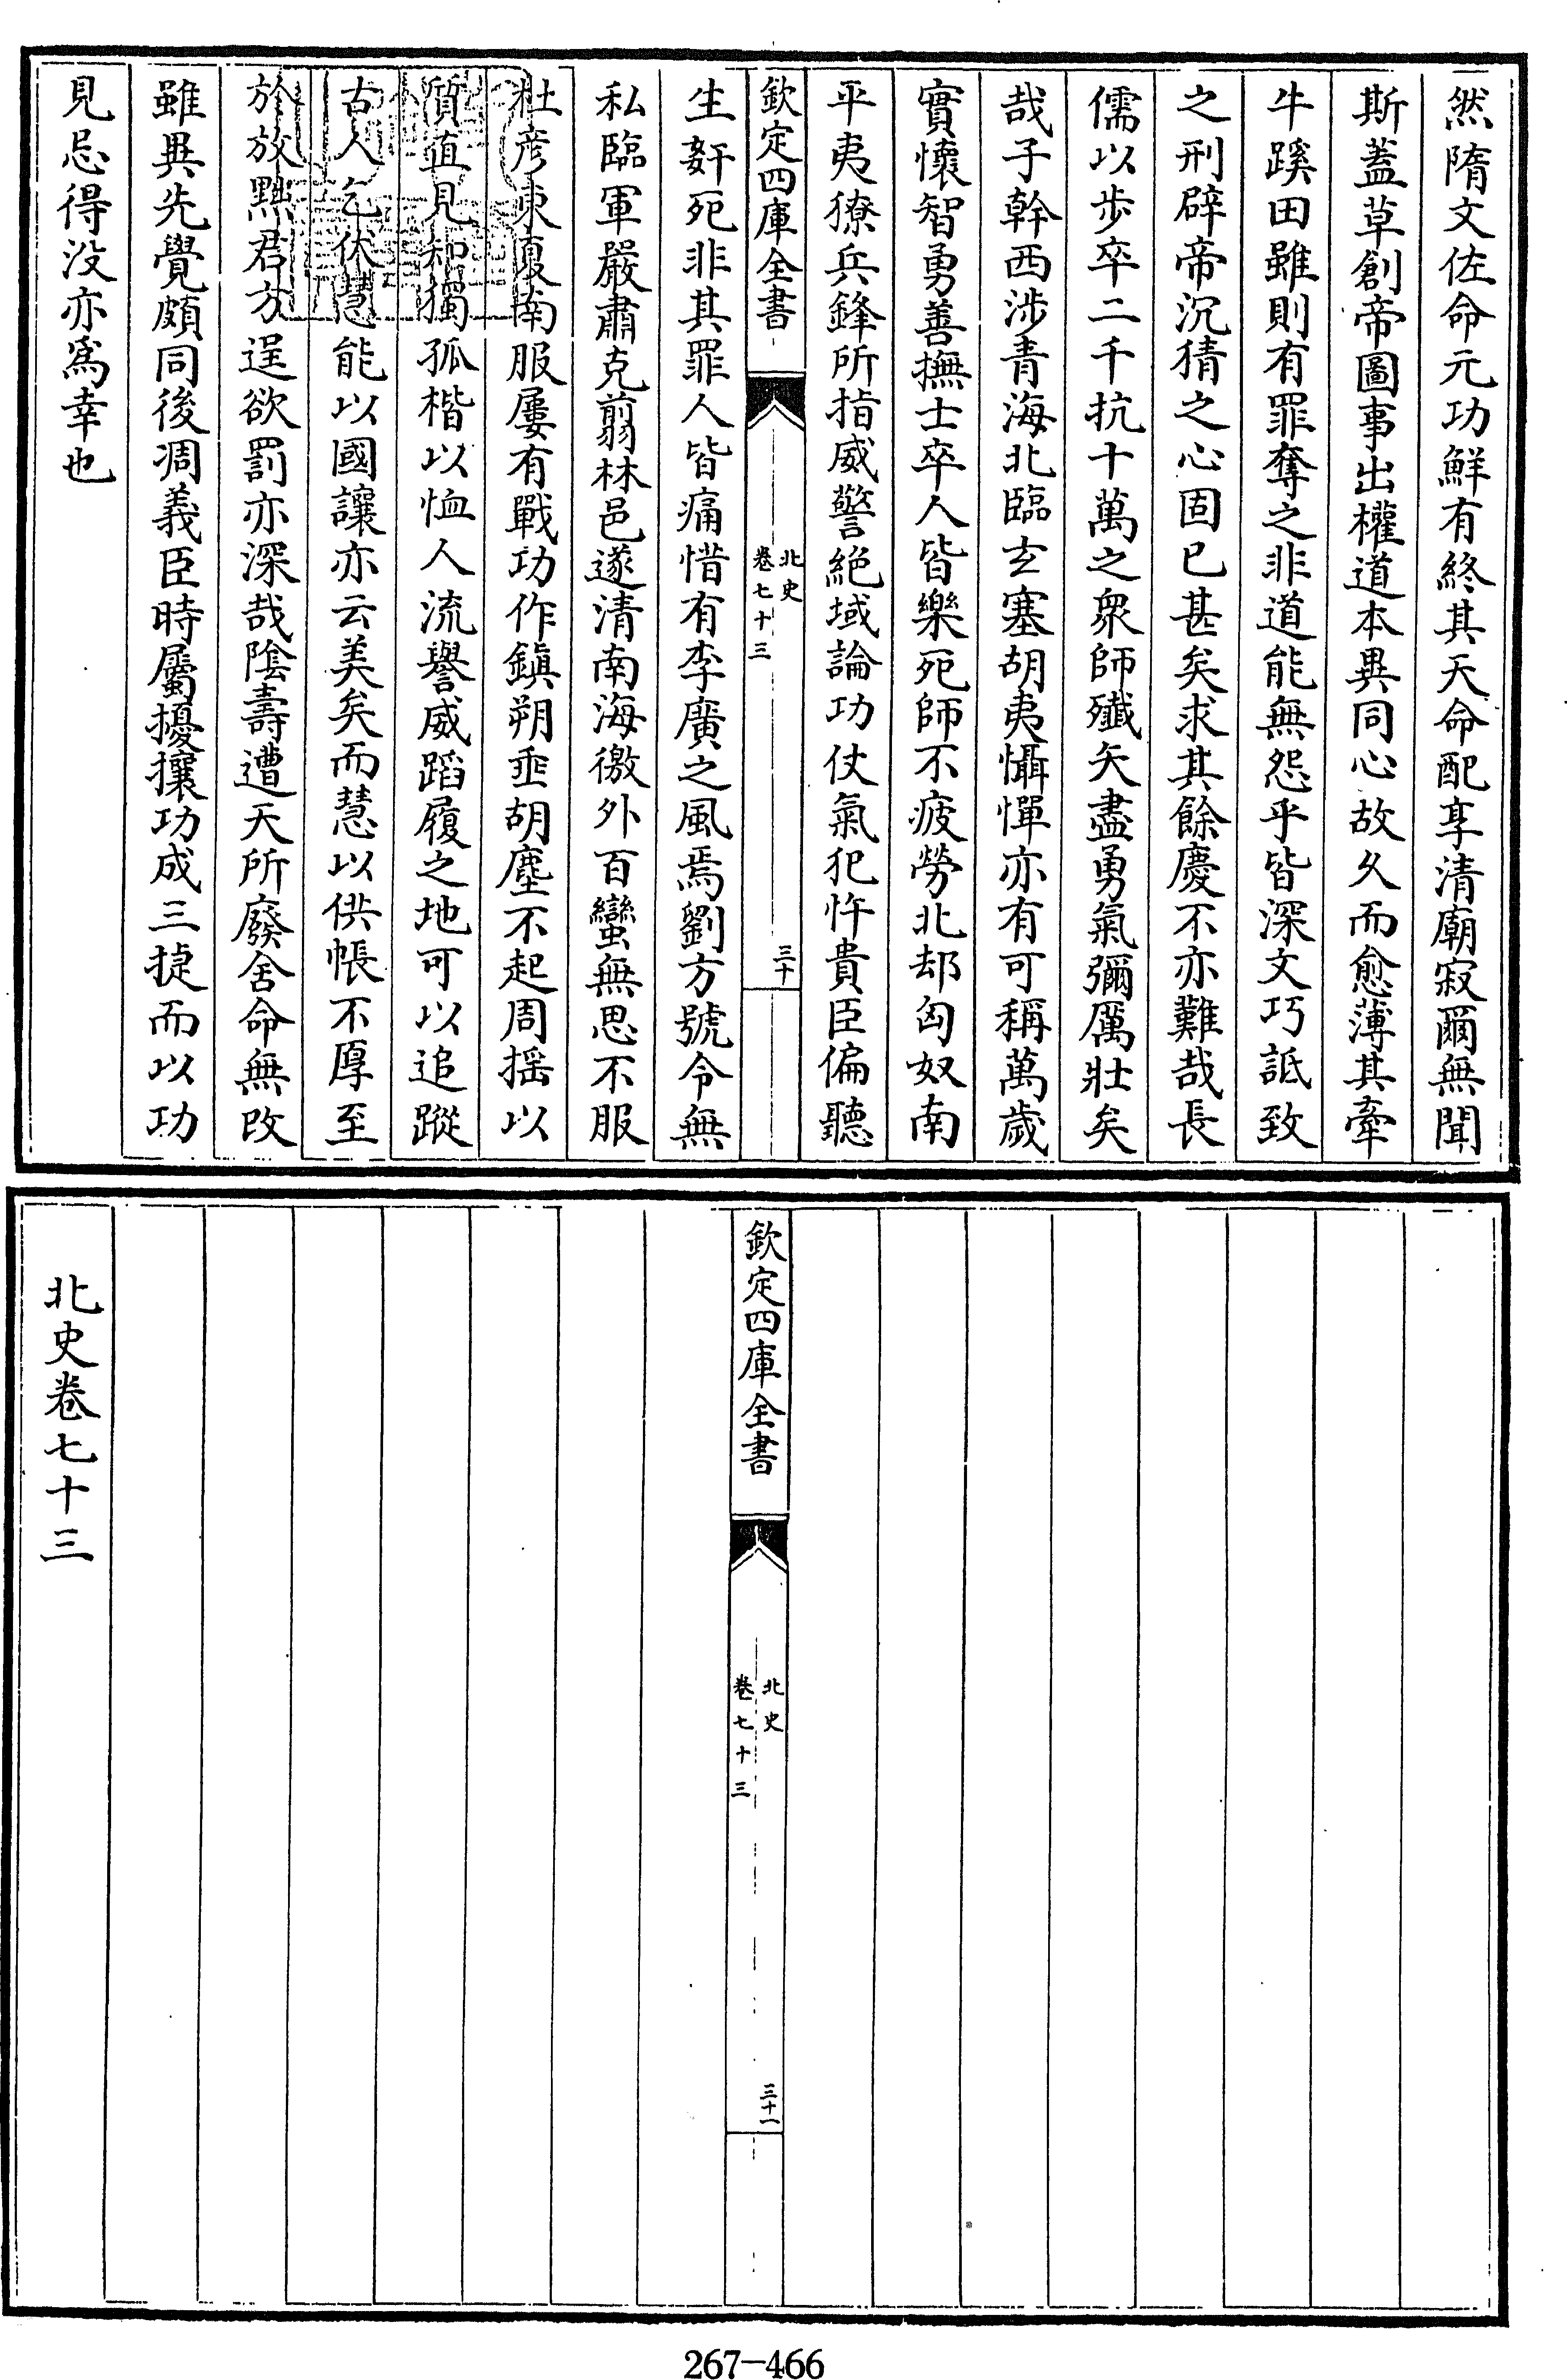 然隋文佐命元功鮮有終其天命配享清廟寂爾無聞
斯蓋草創帝圖事出權道本異同心故久而愈薄其牽
牛蹊田雖則有罪奪之非道能無怨乎皆深文巧詆致
之刑辟帝沉猜之心固已甚矣求其餘慶不亦難哉長
儒以步卒二千抗十萬之衆師殲矢盡勇氣彌厲壯矣
哉子幹西涉青海北臨玄塞胡夷懾憚亦有可稱萬歲
實懷智勇善撫士卒人皆樂死師不疲勞北却匈奴南
平夷獠兵鋒所指威警絕域論功仗氣犯忤貴臣偏聽
欽定四庫全書
北史
卷七十三
三十
生奸死非其罪人皆痛惜有李廣之風焉劉方號令無
私臨軍嚴肅克翦林邑遂清南海徼外百蠻無思不服
杜彦東夏南服屢有戰功作鎮朔垂胡塵不起周搖以
質直見知獨孤楷以恤人流譽威蹈履之地可以追蹤
古人乞伏慧能以國讓亦云美矣而慧以供帳不厚至
於放黜君方逞欲罰亦深哉陰壽遭天所廢舍命無改
雖異先覺頗同後凋義臣時屬擾攘功成三捷而以功
見忌得没亦爲幸也
欽定四庫全書
北史
卷七十三
三十一
北史卷七十三
267-466